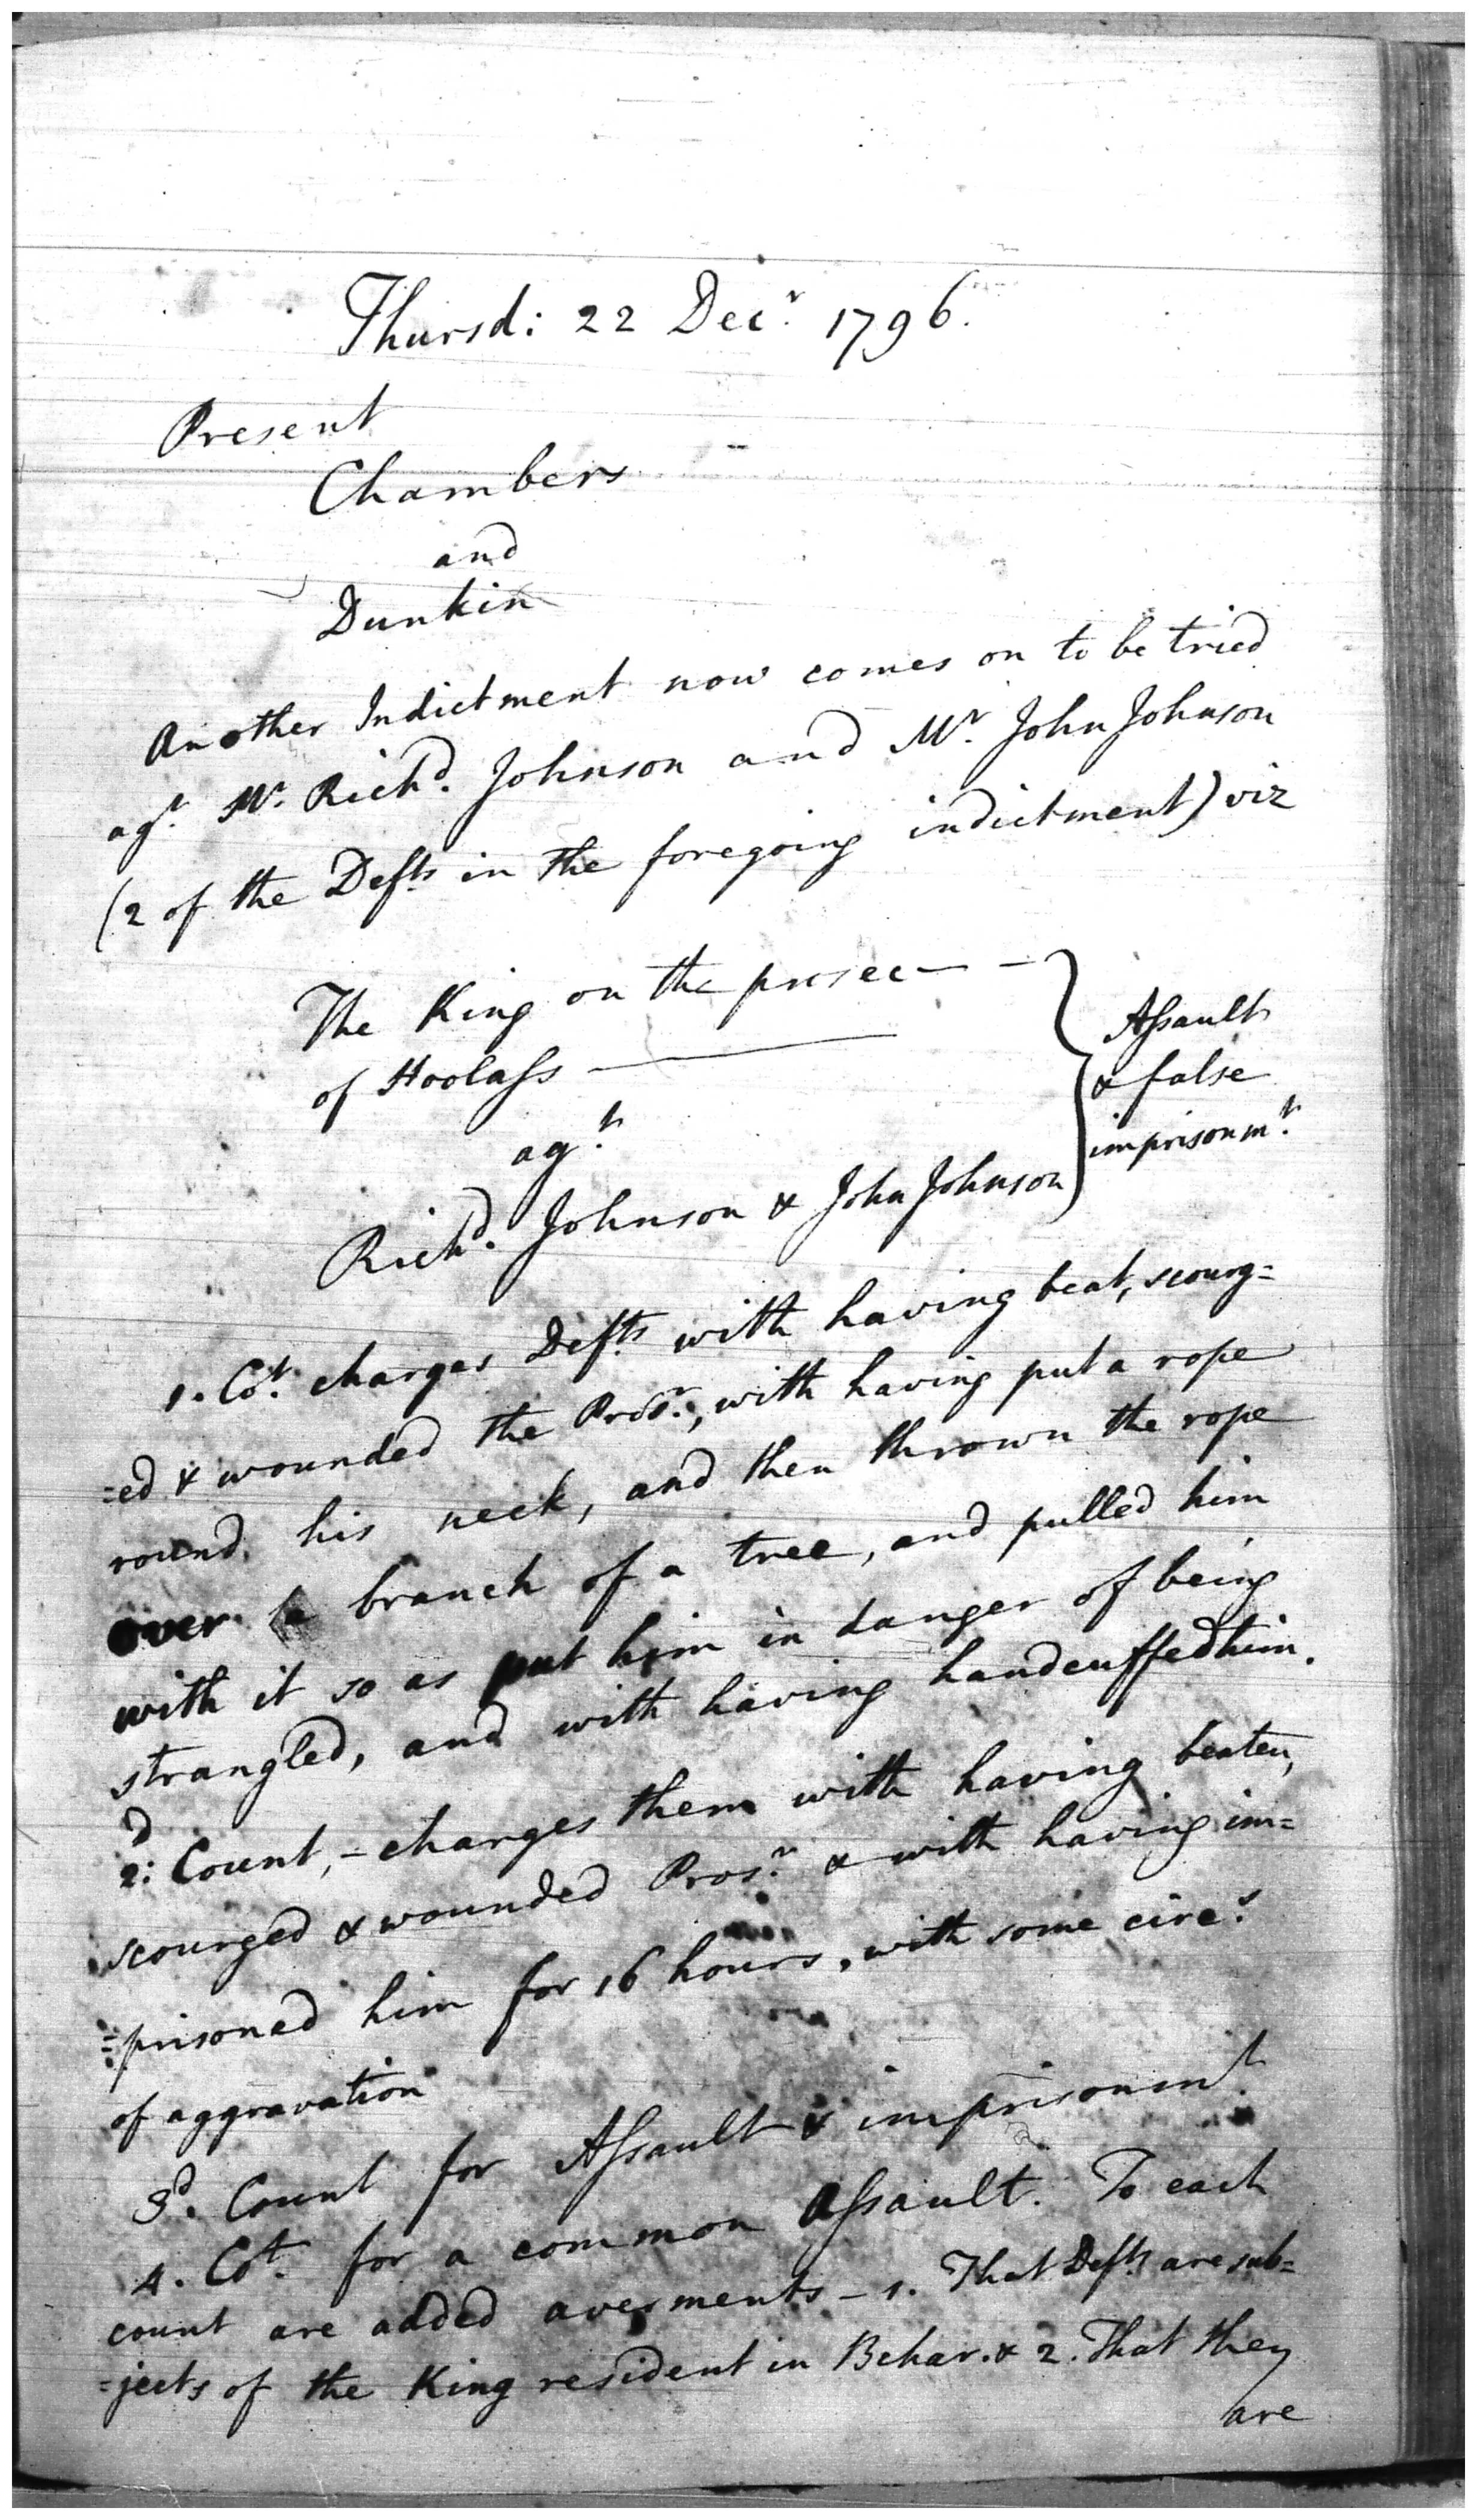 Thursd: 22 Decr. 1796.
Present
Chambers
and
Dunkin
Another Indictment now comes on to be tried
agt. Mr. Richd. Johnson and Mr. John Johnson
(2 of the Defts in the foregoing indictment) viz
The King on the prosec— —
of Hoolass ———
agt.
Richd. Johnson & John Johnson
Assault
& false
imprisonmt.
1. Cot. charges Defts with having beat, scourg=
=ed & wounded the Prosr., with having put a rope
round his neck, and then thrown the rope
over a branch of a tree, and pulled him
with it so as put him in danger of being
strangled, and with having handcuffed him.
2d: Count, – charges them with having beaten,
scourged & wounded Prosr. & with having im=
=prisoned him for 16 hours, with some circs.
of aggravation
3d. Count for Assault & imprisonmt.
4. Cot. for a common Assault. To each
count are added averments – 1. That Defts are sub=
=jects of the King resident in Behar. & 2. That they
are